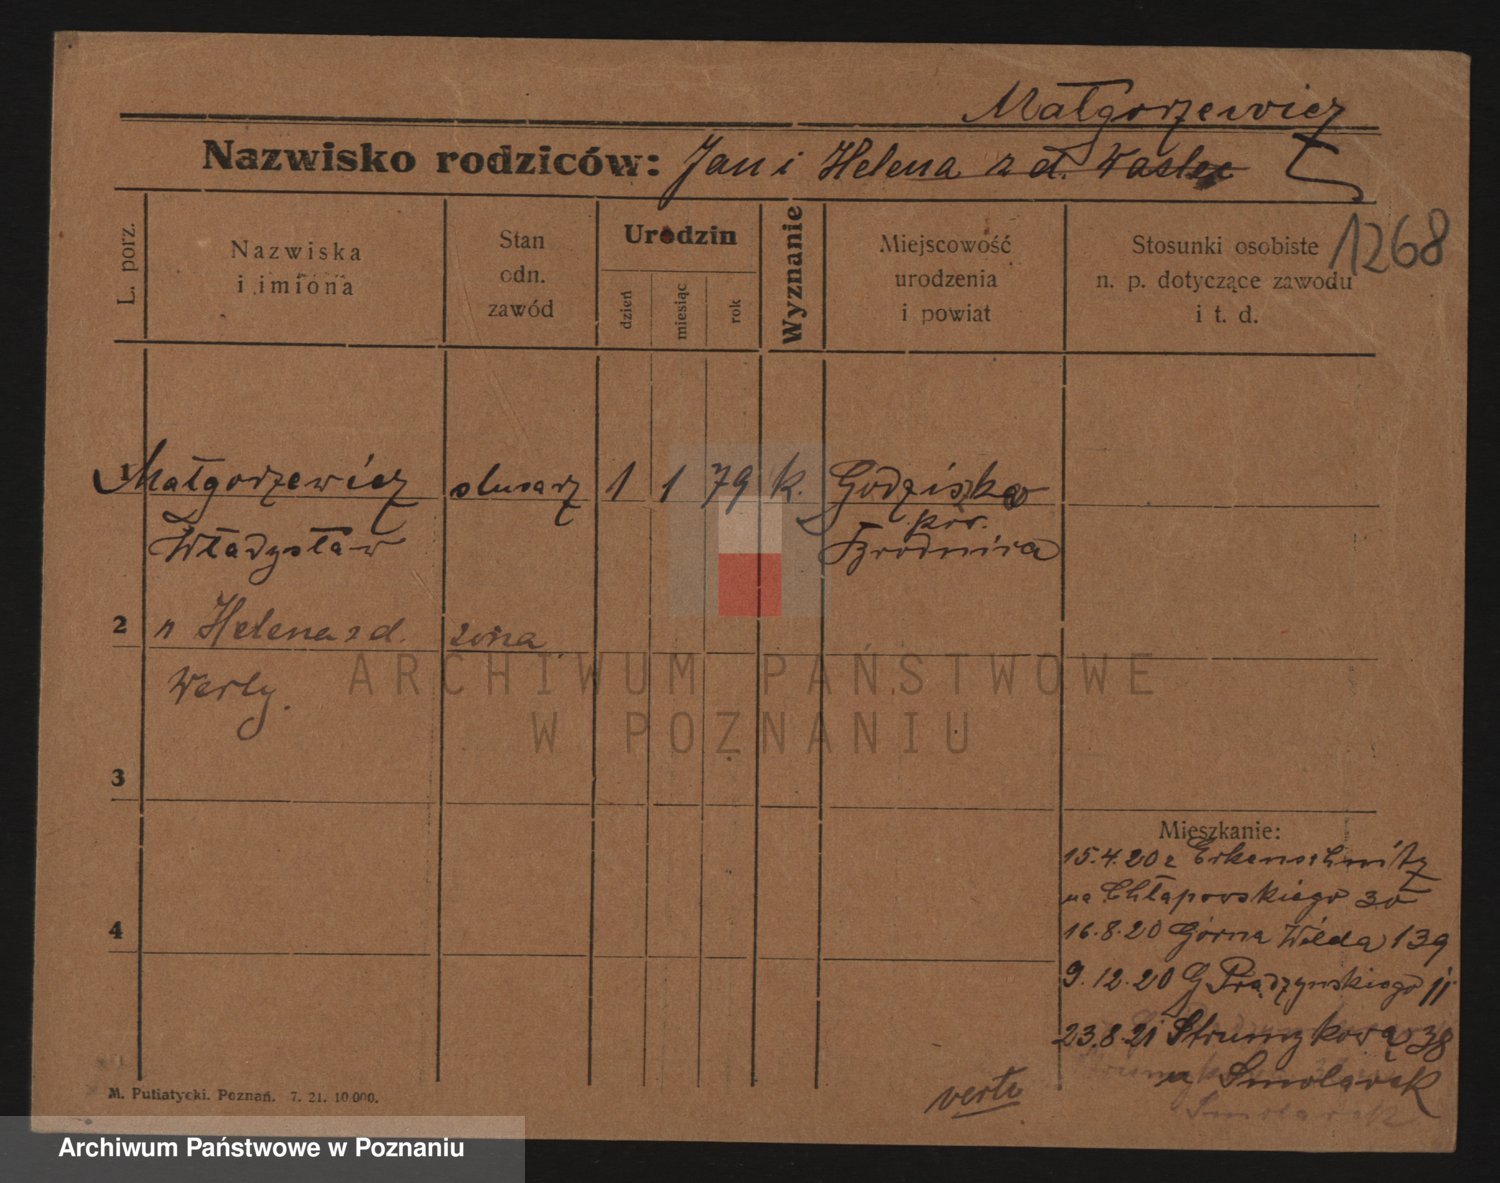 Małgorzewicz
Nazwisko rodziców: Jan i Helena z d.
1268
L. porz.
Nazwiska
i imiona
Stan
odn.
zawód
Urodzin
dzień
miesiąc
rok
Wyznanie
Miejscowość
urodzenia
i powiat
Stosunki osobiste
n. p. dotyczące zawodu
i t. d.
1 Małgorzewicz slusarz 1 1 79 k. Godziszka
pow.
Władysław Brodnica
2 Helena z d. żona
Werly.
3
4
Mieszkanie:
15.4.20 z
na Chłapowskiego 30
16.8.20 Górna Wilda 139
9.12.20 G Prądzynskiego 11
23.8.21 Strumykowa 38
u Smolarek
Smolarek
verte
M. Putiatycki. Poznań. 7. 21. 10.000.
ARCHIWUM PAŃSTWOWE
W POZNANIU
Archiwum Państwowe w Poznaniu